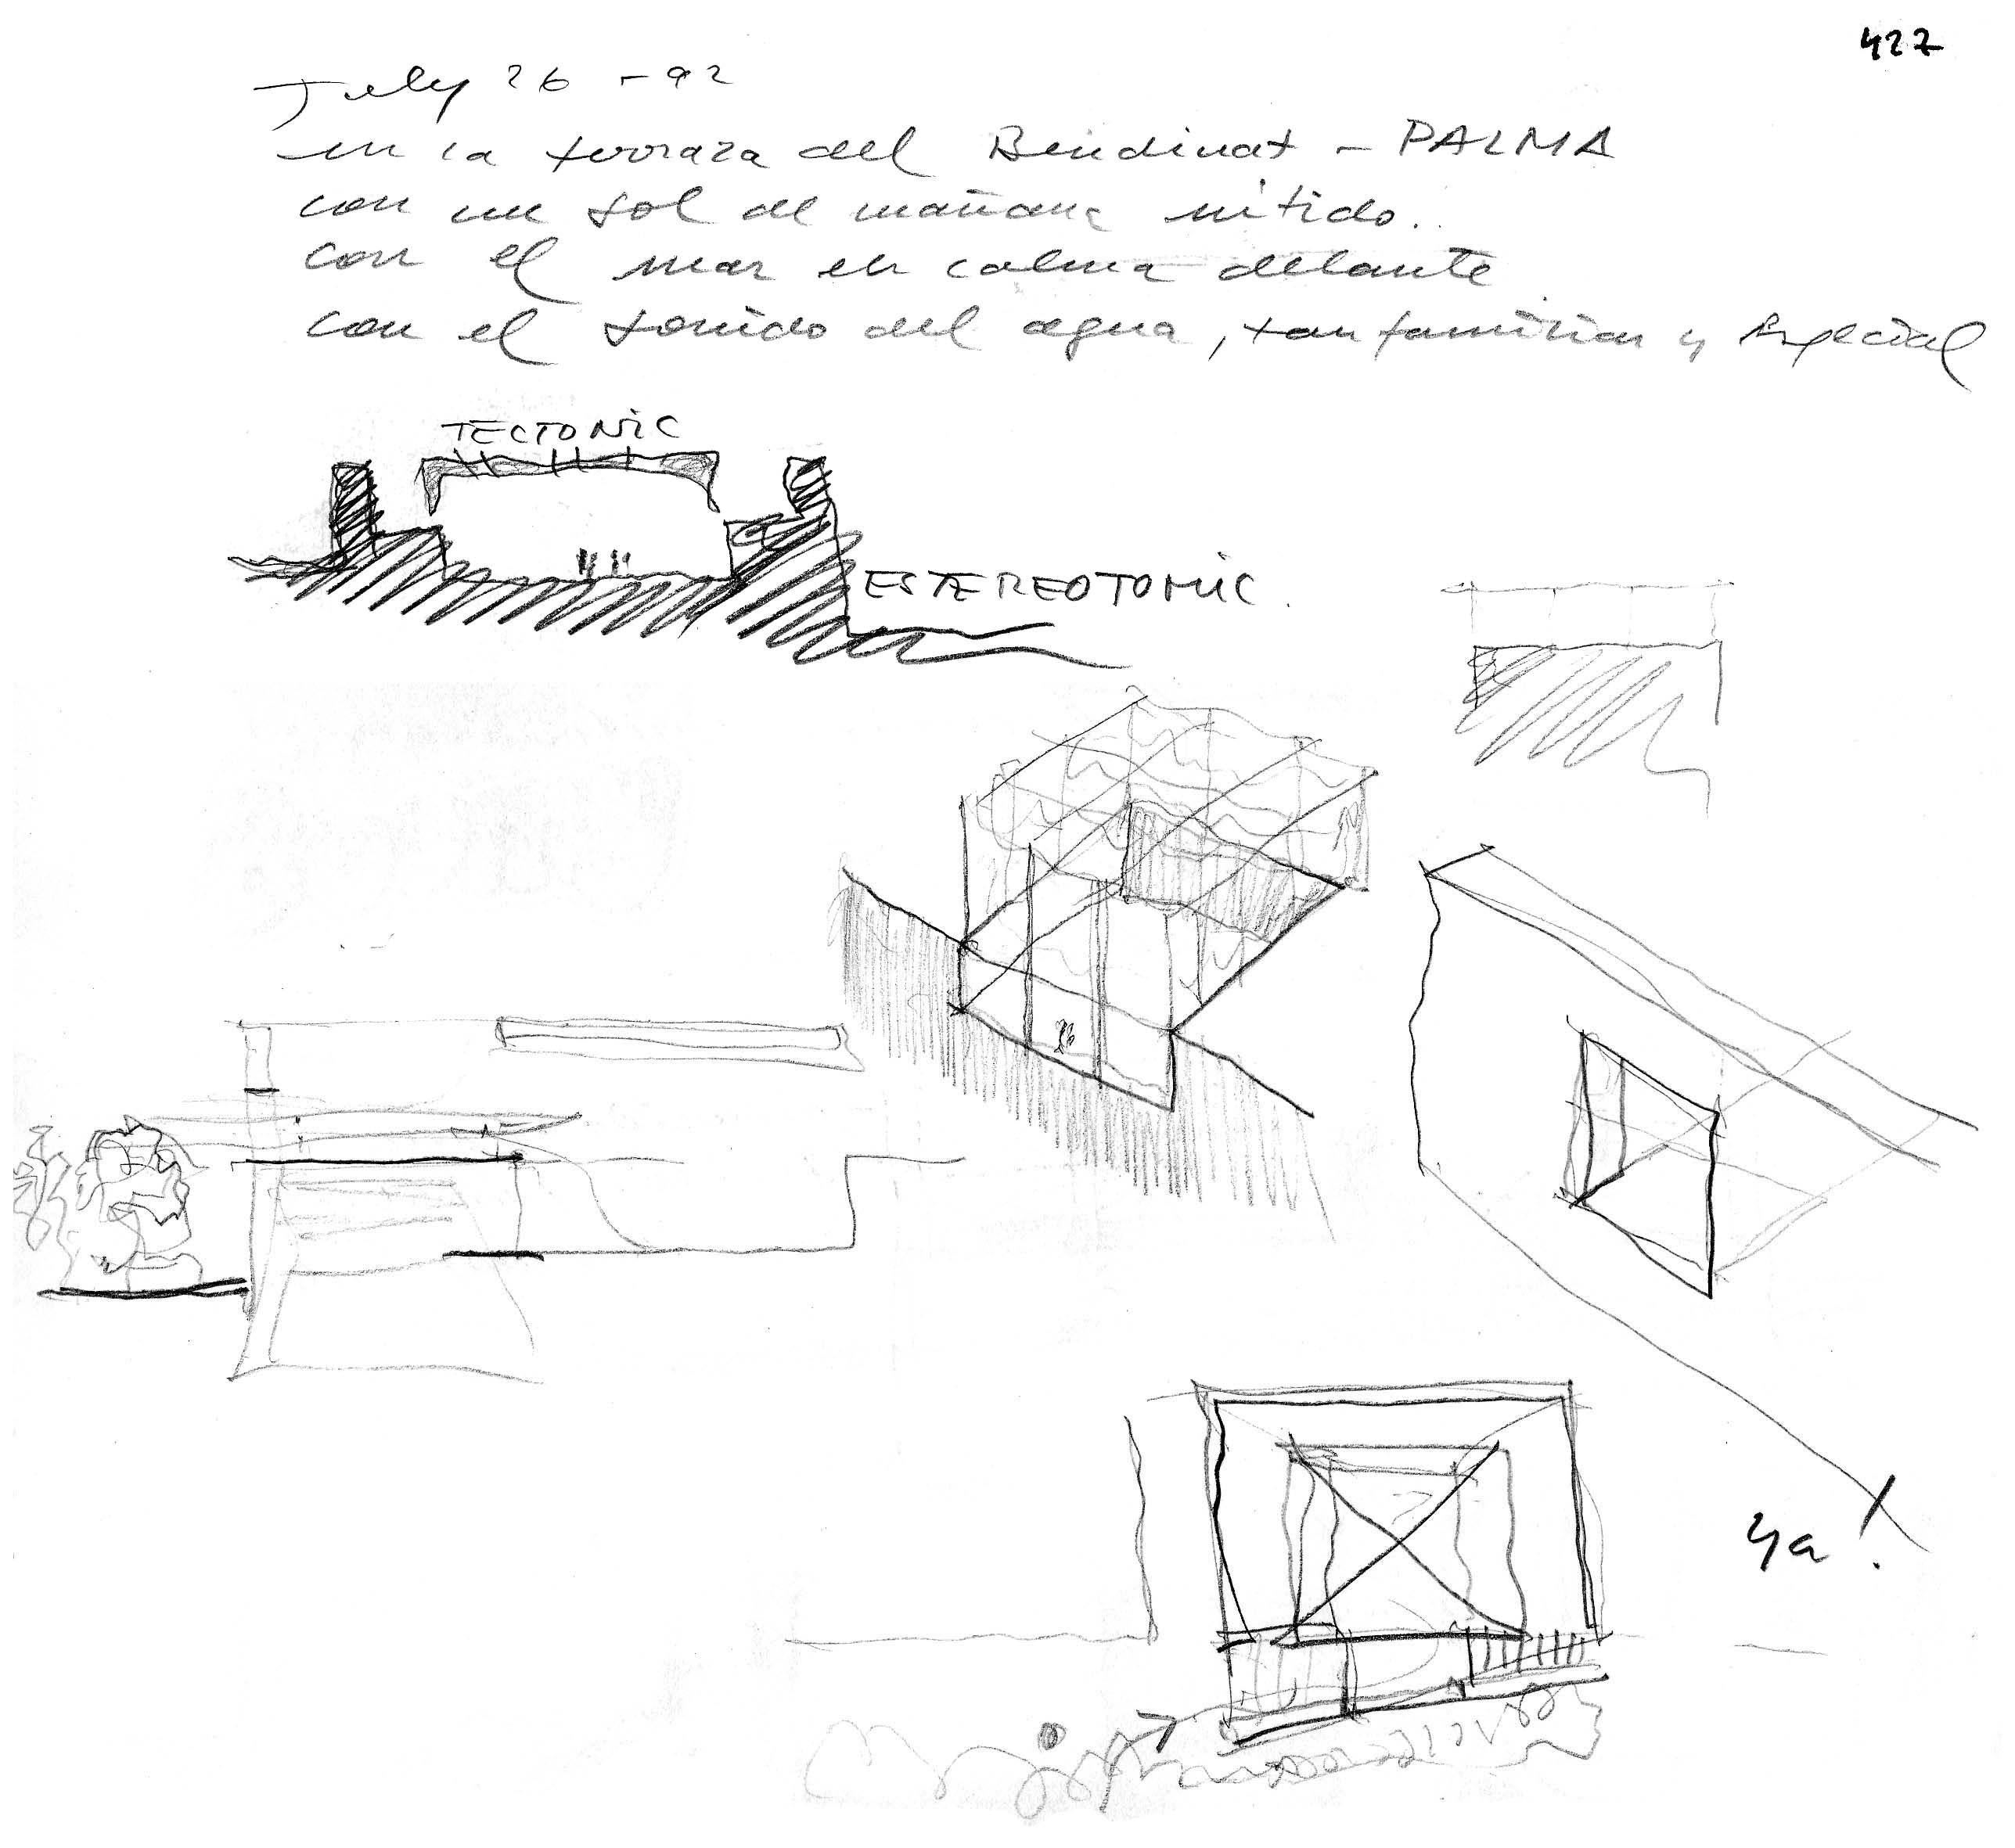 427
July 26 - 92
en la terraza del Bendinat - PALMA
con un sol de mañana nítido..
con el mar en calma delante
con el sonido del agua, tan familiar y especial
TECTONIC
ESTEREOTOMIC.
ya!